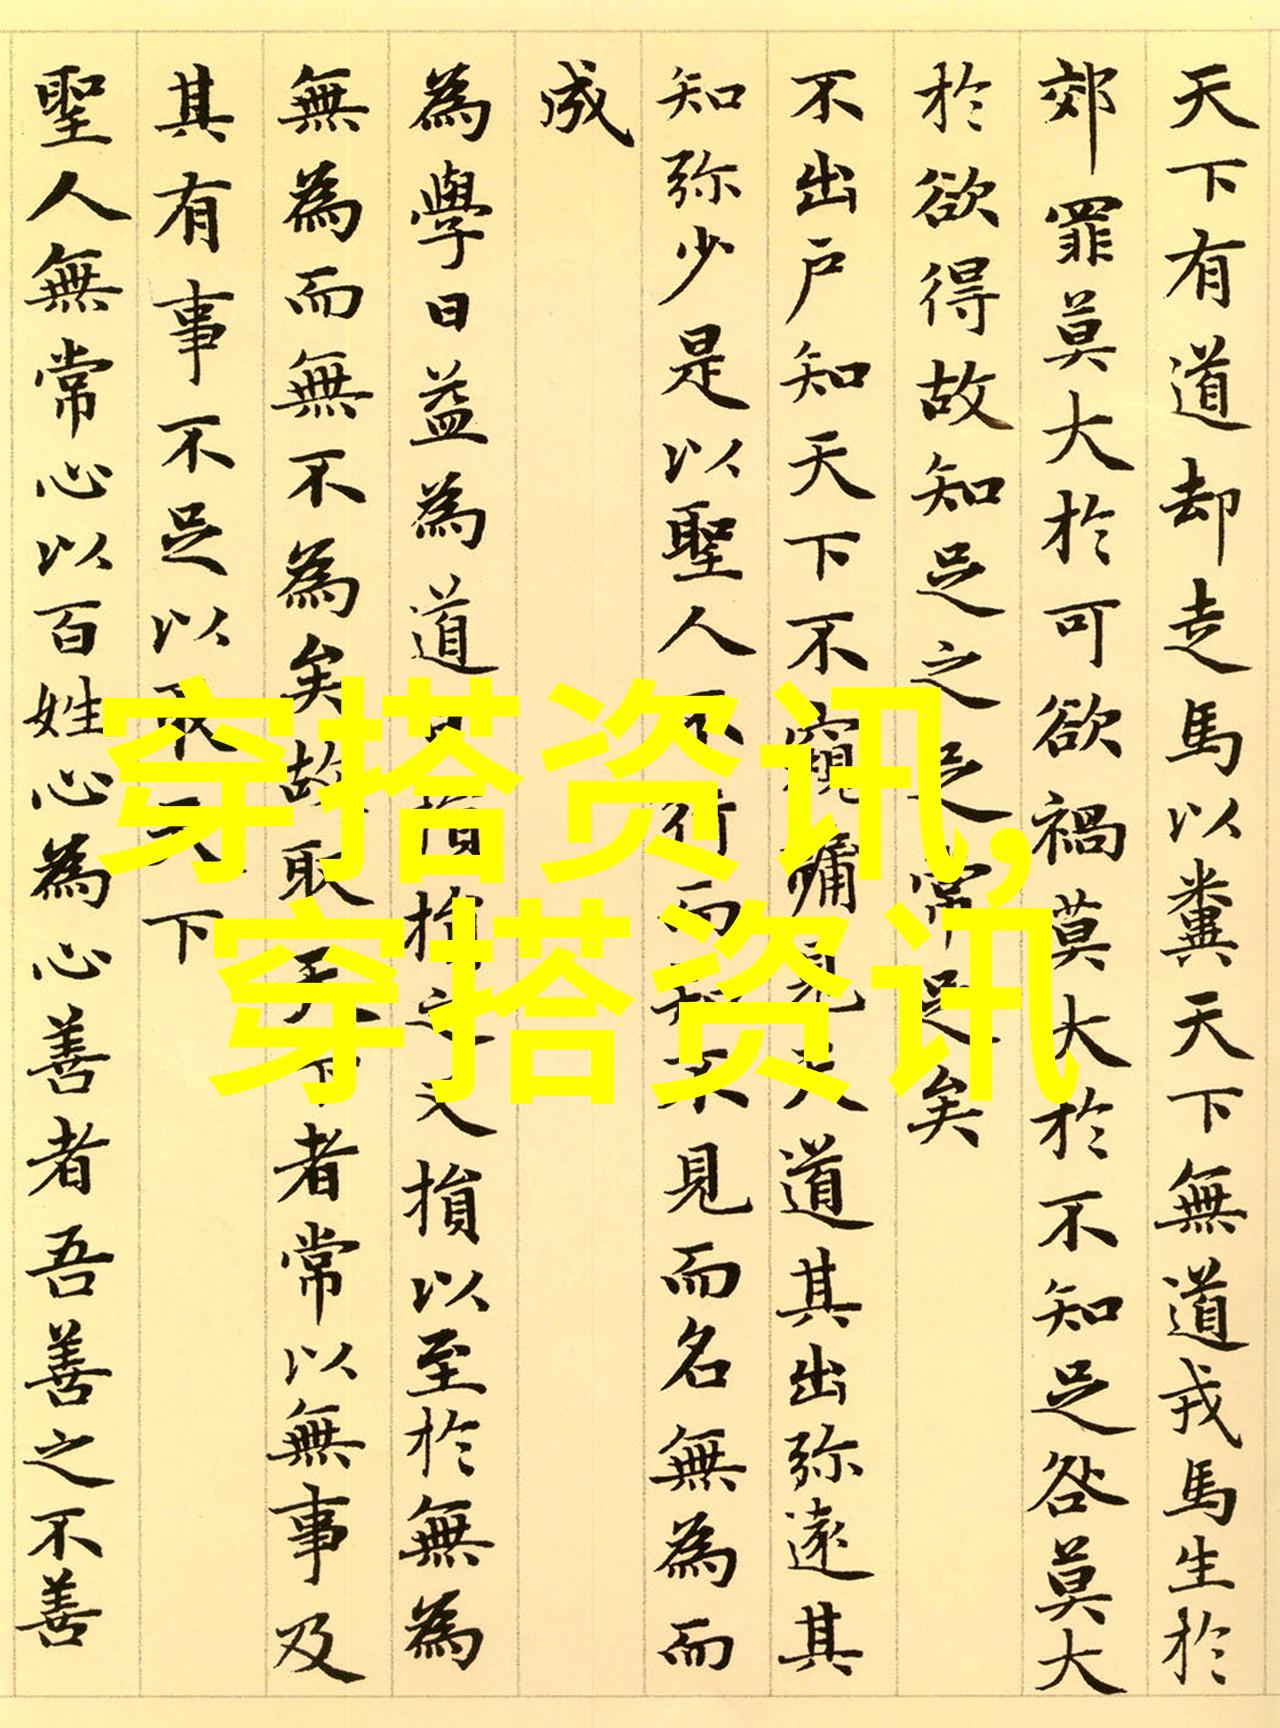 天下有道却走馬以糞天下無道戎馬生於
郊罪莫大於可欲禍莫大於不知足咎莫大
於欲得故知足之足常足矣
不出戶知天下不窺牖見天道其出弥遠其
知弥少是以聖人不行而知不見而名無為而
成
為學日益為道日損損之又損以至於無為
無為而無不為矣故取天下者常以無事及
其有事不足以取天下
聖人無常心以百姓心為心善者吾善之不善
穿搭资讯,
穿搭资讯